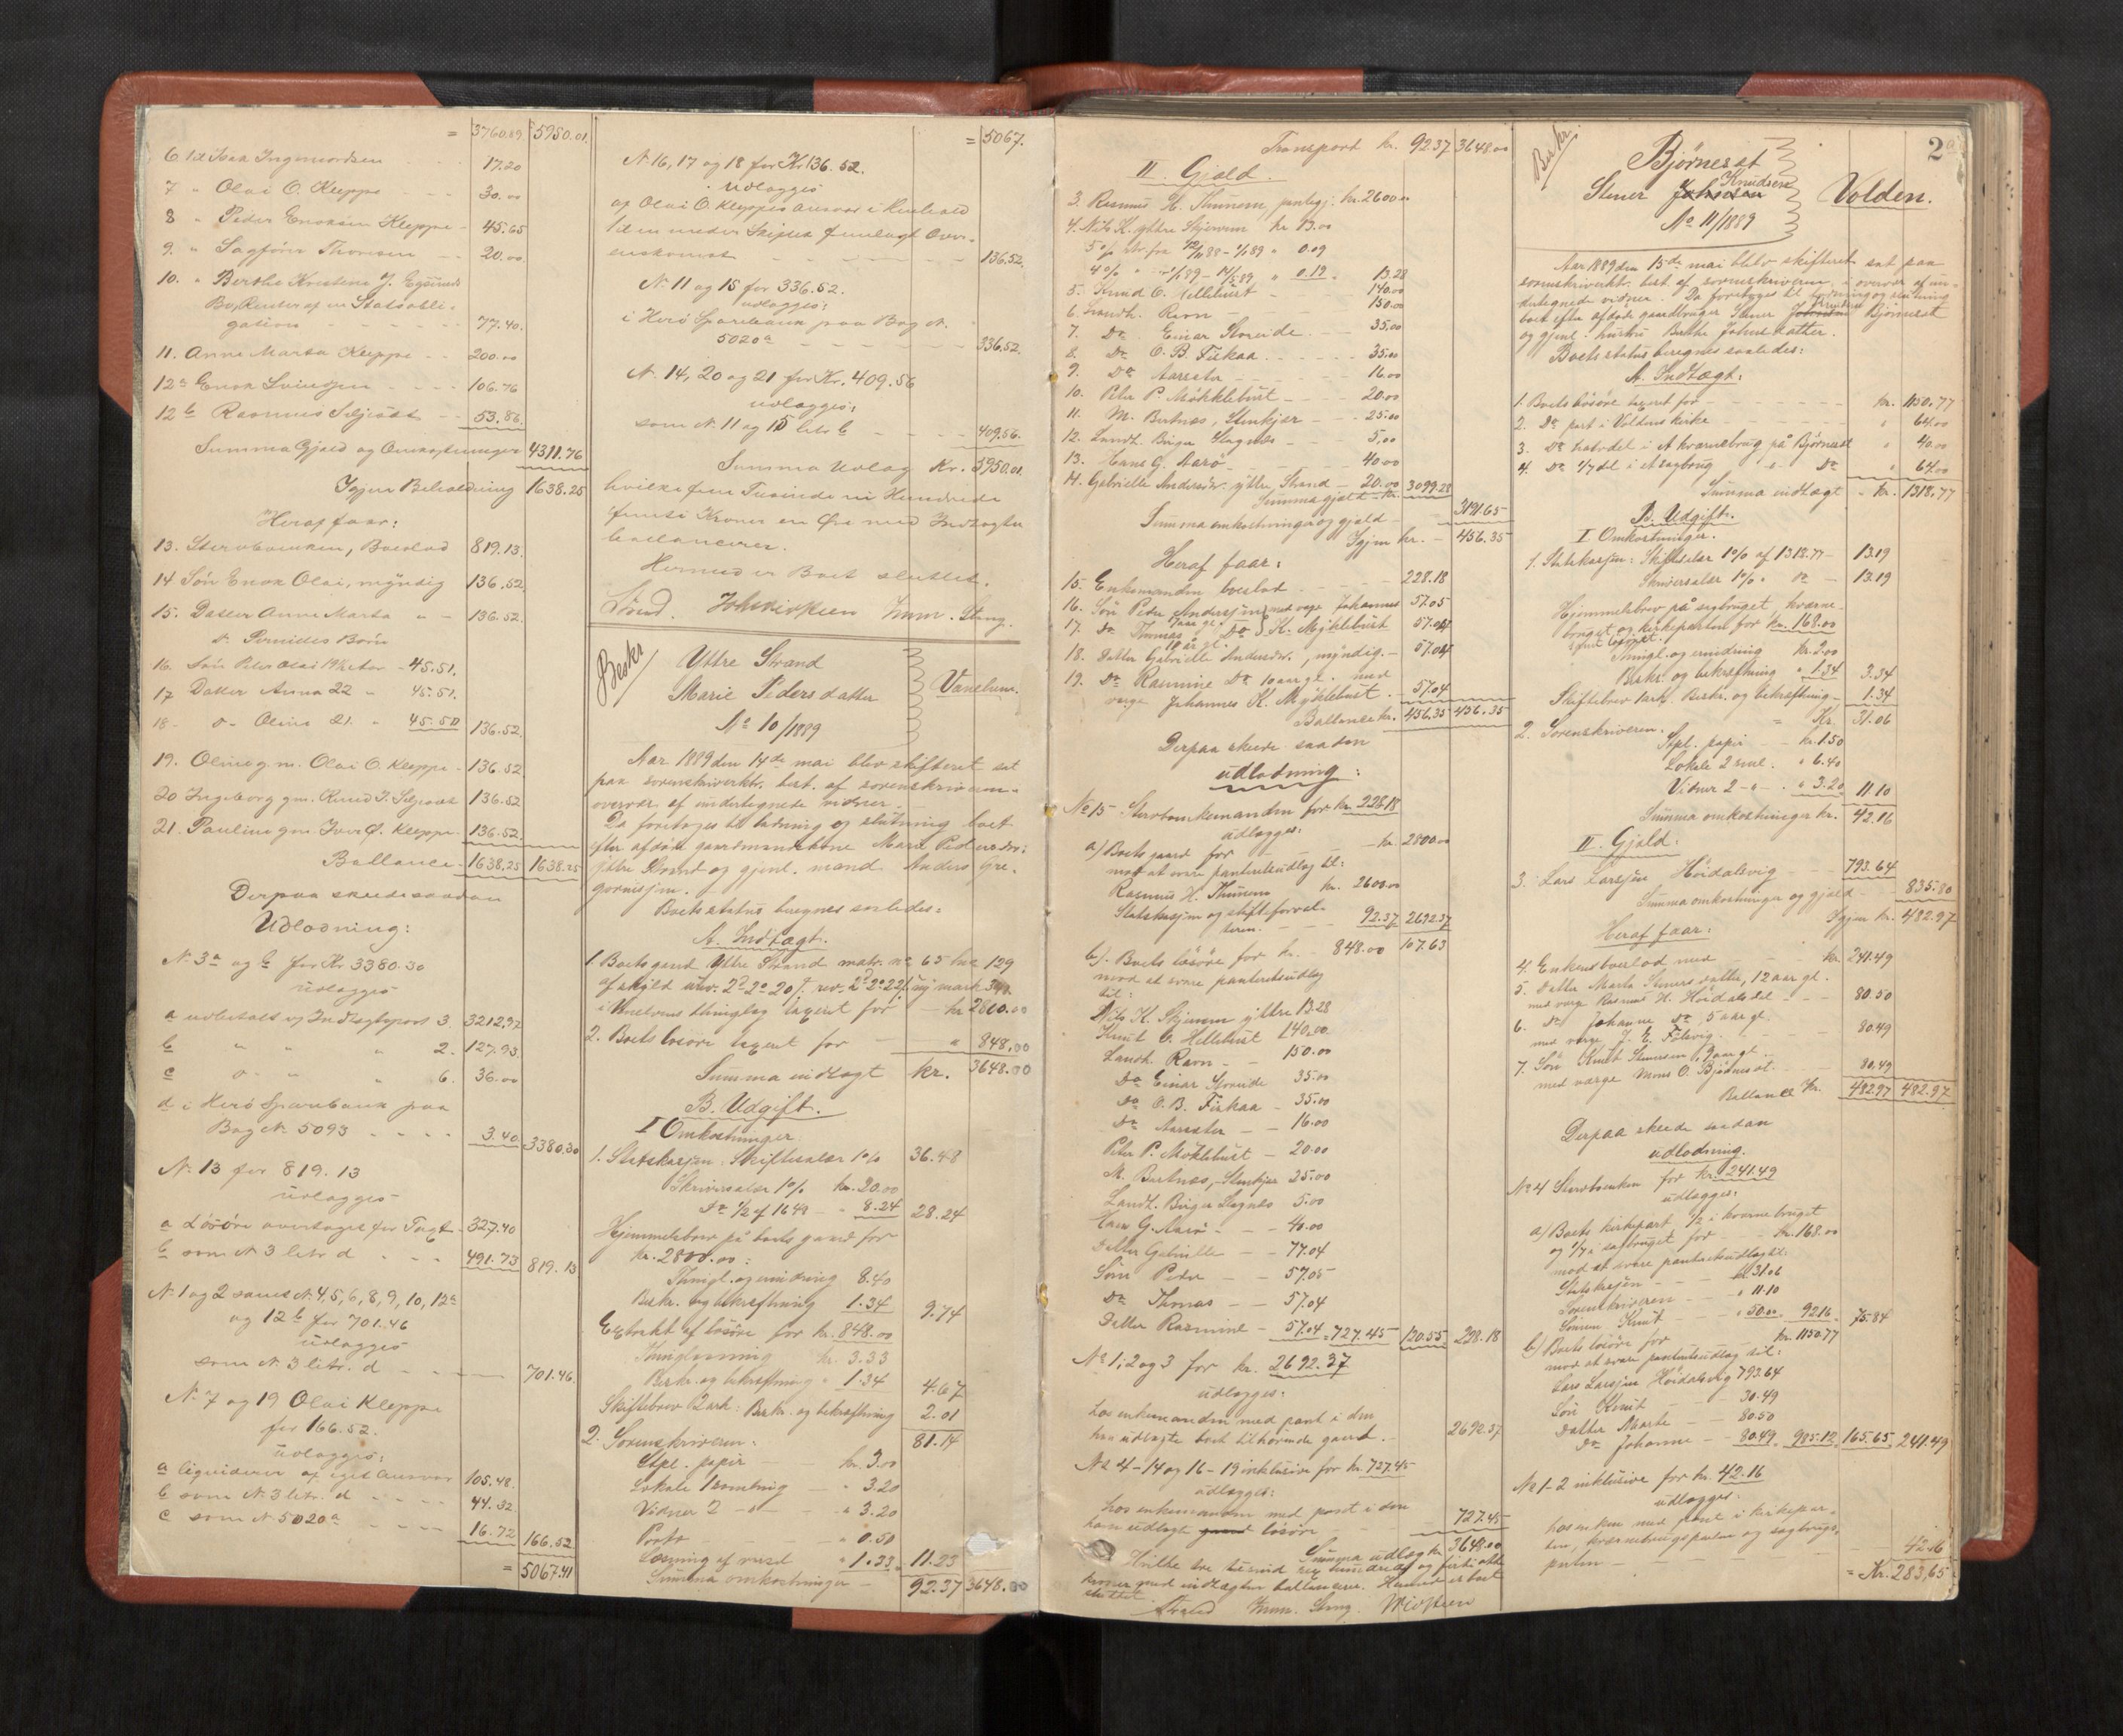 = 3760.89 5950.01
6. til Isak Ingmundsen - - 17.20
7 " Olai O. Kleppe - - - 30.00
8 " Peder Enoksen Kleppe - 45.65
9. " Sagfører Thoresen - - 20.00
10. " Berthe Kristena J.
Bo, Renter af en Statsobli-
gation - - - - - 77.40.
11. Anne Marta Kleppe - - 200.00
12a Enok - - - 106.76
12b Rasmus - - 53.86.
Summa Gjæld og Omkostninger 4311.76
Igjen Beholdning 1638.25
Heraf faar:
13. Stervboenken, Boeslod 819.13.
14 Søn Enok Olai, myndig 136.52
15. Datter Anna Marta " - 136.52.
16. Søn Peter Olai 19½ etar - 45.51.
17 Datter Anna 22 " 45.51.
18 - o - Olina 21. " 45.50 136.52.
19. Oline g. m. Olai O. Kleppe - 136.52.
20 Ingeborg gm. Knud J. 136.52
21. Pauline gm. Iver Ø. Kleppe - 136.52.
Ballance - 1638.25 1638.25
Derpaa skede saadan
Udlodning:
No 3a og b for Kr 3380.30
udlægges
a udbetalt af Indtægtspost 3. 3212.97
b " " " 2. 127.93.
c o " " 6. 36.00
d i Herø Sparebank paa
Bog No 5093 - - - - 3.40 3380.30
No 13 for 819.13
udlægges -
a Løsøre overtaget for Taxt - 327.40
b som No 3 litr. d - - - 491.73 819.13
No 1 og 2 samt No 4, 5, 6, 8, 9, 10, 12a
og 12b for 701.46
udlægges
som No 3 litr. d - - - 701.46.
No 7 og 19 Olai Kleppe
for 166.52.
udlægges:
a liquiderer af eget Ansvar 105.48.
b som No 3 litr. d - - - - 44.32.
c som No 5020a - - - - 16.72 166.52
= 5067.41
= 5067.
No 16, 17 og 18 for Kr 136.52.
udlægges
af Olai O. Kleppes Ansvar i Henhold
til en under Skiftet fremlagt Over-
enskomst - - - - - 136.52.
No 11 og 15 for 336.52.
udlægges:
i Herø Sparebank paa Bog No.
5020a - - - - - 336.52.
No 14, 20 og 21 for Kr. 409.56
udlægges:
som No 11 og 15 litr b - - - 409.56.
Summa Udlæg Kr. 5950.01.
hvilke fem Tusinde ni Hundrede
femti Kroner en Øre med Indtægten
ballancerer.
Hermed er Boet sluttet.
Strand.
Beskr
Yttre Strand
Marie Pedersdatter
No 10/1889
Vanelven.
Aar 1889 den 14de mai blev skifteret sat
paa sorenskriverktr. best. af sorenskriveren -
overvær. af undertegnede vidner -
Da foretages til lodning og slutning boet
efter afdøde gaardmandskone Marie Pedersdr.
yttre Strand og gjenl. mand Anders Gre-
goriussen.
Boets status beregnes saaledes:
A. Indtægt.
1. Boets gaard Yttre Strand matr. no 65 lno 129
i Vanelvens thinglag taxeret for - kr 2800.00
2. Boets løsøre taxeret for - " 848.00
Summa indtægt kr. 3648.00
B. Udgift.
I Omkostninger
1. Statskassen: Skiftesalær 1% 36.48
Skriversalær 1% kr. 20.00
Do ½ af 1648 - " 8.24 28.24
Hjemmelsbrev på boets gaard for
kr. 2800.00:
Thingl. og 8.40
Beskr. og bekræftning 1.34 9.74
Extrakt af løsøre for kr. 848.00
Thinglæsning kr. 3.33
Beskr. og bekræftning " 1.34 4.67
Skiftebrev 2 ark: Beskr. og bekræftning 2.01
81.14
2. Sorenskriveren:
Stpl. papir - kr. 3.00
Lokale 1 samling - " 3.20
Vidner 2 - " - " 3.20
Porto " 0.50
Læsning af " 1.33 11.23
Summa omkostninger - 92.37 3648.00
Transport kr. 92.37 3648.00
II. Gjæld.
3. Rasmus H. Thunem, pantegj. kr. 2600.00
4. Nils K. yttre Stjevem kr 13.00
5% 0.09
4% " 0.19 13.28
5. Knud O. Hellebust - 140.00
6. Landh. Ravn - - - 150.00
7. Do Einar Storeide - - 35.00
8. Do O. B. Fiskaa - - - 35.00
9. Do Aarsæter - - - 16.00
10. Peter P. Møklebust - - - 20.00
11. M. Bertnæs, Stenkjær - - 25.00
12. Landh. Birger Stagnæs - - 5.00
13. Hans G. Aarø - - - 40.00
14. Gabrielle Andersdr. yttre Strand - 20.00 3099.28
Summa gjæld - kr.
Summa omkostninger og gjæld - 3191.65
Igjen kr. - 456.35
Heraf faar:
15. Enkemanden boeslod - - - 228.18
16. Søn Peder Anderssen } med verge Johannes 57.05
17. Do Thomas Do } K. Myklebust 57.04
18. Datter Gabrielle Andersdr., myndig. - 57.04
19. Do Rasmine Do 10 aar gl. med
verge Johannes K. Myklebust. - 57.04
Ballance kr. 456.35 456.35
Derpaa skede saadan
udlodning:
No 15 Stervboenkemanden for kr. 228.18
udlægges:
a) Boets gaard for - - kr. 2800.00
mod at svare panteretsudlæg til:
Rasmus H. Thunem kr. 2600.00
Statskassen og skifteforval-
teren. - - - 92.37 2692.37
107.63
b). Boets løsøre for kr. - 848.00
mod at svare panteretsudlæg
til:
Nils K. Stjevem yttre 13.28
Knut O. Hellebust 140.00
Landh. Ravn - - 150.00
Do Einar Storeide 35.00
Do O. B. Fiskaa - 35.00
Do Aarsæter - - 16.00
Peter P. Møklebust - 20.00
M. Bertnæs, Stenkjær 25.00
Landh. Birger Stagnæs 5.00
Hans G. Aarø - - - 40.00
Datter Gabrielle - - 77.04
Søn Peder - - 57.05
Do Thomas - - 57.04
Datter Rasmine - 57.04 = 727.45 120.55 228.18
No 1, 2 og 3 for kr. 2692.37
udlægges:
hos enkemanden med pant i den
ham udlagte boet tilhørende gaard. - 2692.37
No 4 - 14 og 16 - 19 inklusive for kr. 727.45
udlægges:
hos enkemanden med pant i den
ham udlagte gaard løsøre - - 727.45
Summa udlæg kr. 3648.00
Hvilke tre tusind sex hundrede og firti otte
kroner med indtægten ballancerer. Hermed er boet
sluttet.
Strand
2a
Beskr.
Bjørneset
Stener Johnsen Knudsen
No 11/1889
Volden.
Aar 1889 den 15de mai blev skifteret sat paa
sorenskriverktr. best. af sorenskriveren i overvær af un-
dertegnede vidner. Da foretages til lodning og slutning
boet efter afdøde gaardbruger Stener Johnsen Knudsen Bjørneset
og gjenl. hustru Berthe Johnsdatter.
Boets status beregnes saaledes:
A. Indtægt:
1. Boets løsøre taxeret for - - - - kr. 1150.77
2. Do part i Voldens kirke - - - " 64.00
3. Do halvdel i et kværnebrug på Bjørneset " 40.00
4. Do 1/7 del i et sagbrug " Do " 64.00
Summa indtægt - kr. 1318.77
B. Udgift.
I Omkostninger.
1. Statskassen: Skiftesalær 1% af 1318.77 - 13.19
Skriversalær 1% " Do - 13.19
Hjemmelsbrev på sagbruget, kværne-
bruget og kirkeparten for kr. 168.00
Thingl. og kr. 2.00
Beskr. og bekræftning " 1.34 3.34
Skiftebrev 1 ark. Beskr. og bekræftning - 1.34
Kr. 31.06
2. Sorenskriveren.
Stpl. papir - kr. 1.50
Lokale 2 " 6.40
Vidner 2 - " - " 3.20 11.10
Summa omkostninger kr. 42.16
II. Gjæld:
3. Lars Larssen Høidalsvig - - 793.64
Summa omkostninger og gjæld - 835.80
Igjen kr. 482.97
Heraf faar:
4. Enken boeslod med - - kr. 241.49
5. Datter Marta Stenersdatter, 12 aar gl.
med verge Rasmus H. Høidalsdal - - 80.50
6. Do Johanne Do 5 aar gl.
med verge J. E. Folevig. - - 80.49
7. Søn Knut Stenersen, 9 aar gl. -
med verge Mons O. Bjørneset. - 80.49
Ballance kr. 482.97 482.97
Derpaa skede saadan
udlodning.
No 4 Stervboenken for kr. 241.49
udlægges:
a) Boets kirkepart ½ i kværnebruget
og 1/7 i sagbruget for - - kr. 168.00
mod at svare panteretsudlæg til:
Statskassen - - - kr 31.06
Sorenskriveren - - " 11.10
Sønnen Knut - - " 50.00 92.16 75.84
b) Boets løsøre for kr. 1150.77
mod at svare panteretsudlæg til:
Lars Larssen Høidalsvig 793.64
Søn Knut - - 30.49
Datter Marte - - 80.50
Do Johanne - - 80.49 985.12 165.65 241.49
No 1 - 2 inklusive for kr. 42.16
udlægges:
hos enken med pant i kirkepar-
ten, kværnebrugsparten og sagbrugs-
parten - - - 42.16
= Kr. 283.65